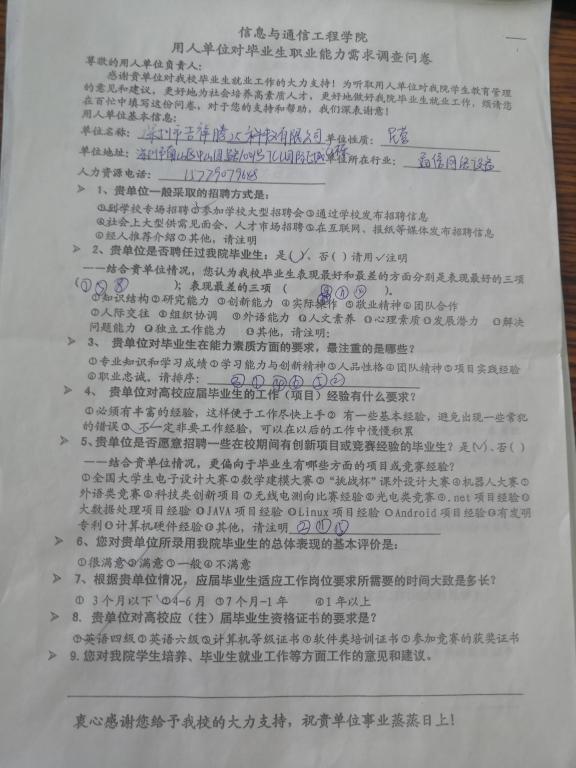 信息与通信工程学院
用人单位对毕业生职业能力需求调查问卷
尊敬的用人单位负责人：
感谢贵单位对我校毕业生就业工作的大力支持！为听取用人单位对我院学生教育管理
的意见和建议，更好地为社会培养高素质人才，更好地做好我院毕业生就业工作，烦请您
在百忙中填写这份问卷，对于您的支持和帮助，我们深表谢意！
用人单位基本信息：
单位名称：深圳市吉祥腾达科技有限公司 单位性质：民营
单位地址：深圳市南山区中山园路1001号TCL国际E城 单位所在行业：通信网络设备
人力资源电话：
1、贵单位一般采取的招聘方式是：
①到学校专场招聘②参加学校大型招聘会③通过学校发布招聘信息
④社会上大型供需见面会、人才市场招聘⑤在互联网、报纸等媒体发布招聘信息
⑥经人推荐介绍⑦其他，请注明
2、贵单位是否聘任过我院毕业生：是(√)、否( )请用✓注明
——结合贵单位情况，您认为我校毕业生表现最好和最差的方面分别是表现最好的三项
(①⑤⑧ )；表现最差的三项 ( )。
①知识结构②研究能力 ③创新能力 ④实际操作 ⑤敬业精神⑥团队合作
⑦人际交往 ⑧组织协调 ⑨外语能力 ⑩人文素养 ⑪心理素质⑫发展潜力 ⑬解决
问题能力 ⑭独立工作能力 ⑮其他，请注明：
3、 贵单位对毕业生在能力素质方面的要求，最注重的是哪些？
①专业知识和学习成绩②学习能力与创新精神③人品性格④团队精神⑤项目实践经验
⑥职业忠诚，请排序：
4、 贵单位对高校应届毕业生的工作（项目）经验有什么要求？
①必须有丰富的经验，这样便于工作尽快上手② 有一些基本经验，避免出现一些常犯
的错误③ 不一定非要工作经验，可以在以后的工作中慢慢积累
5、贵单位是否愿意招聘一些在校期间有创新项目或竞赛经验的毕业生？是(✓)、否( )
——结合贵单位情况，更偏向于毕业生有哪些方面的项目或竞赛经验？
①全国大学生电子设计大赛②数学建模大赛③“挑战杯”课外设计大赛④机器人大赛⑤
外语类竞赛⑥科技类创新项目⑦无线电测向比赛经验⑧光电类竞赛⑨.net项目经验⑩
大数据处理项目经验⑪JAVA项目经验⑫Linux项目经验⑬Android项目经验⑭有发明
专利⑮计算机硬件经验⑯其他，请注明
6、您对贵单位所录用我院毕业生的总体表现的基本评价是：
①很满意②满意③一般④不满意
7、根据贵单位情况，应届毕业生适应工作岗位要求所需要的时间大致是多长？
① 3个月以下 ②4-6月 ③7个月-1年 ④1年以上
8. 贵单位对高校应（往）届毕业生资格证书的要求是？
①英语四级②英语六级③计算机等级证书④软件类培训证书⑤参加竞赛的获奖证书
9.您对我院学生培养、毕业生就业工作等方面工作的意见和建议。
衷心感谢您给予我校的大力支持，祝贵单位事业蒸蒸日上！